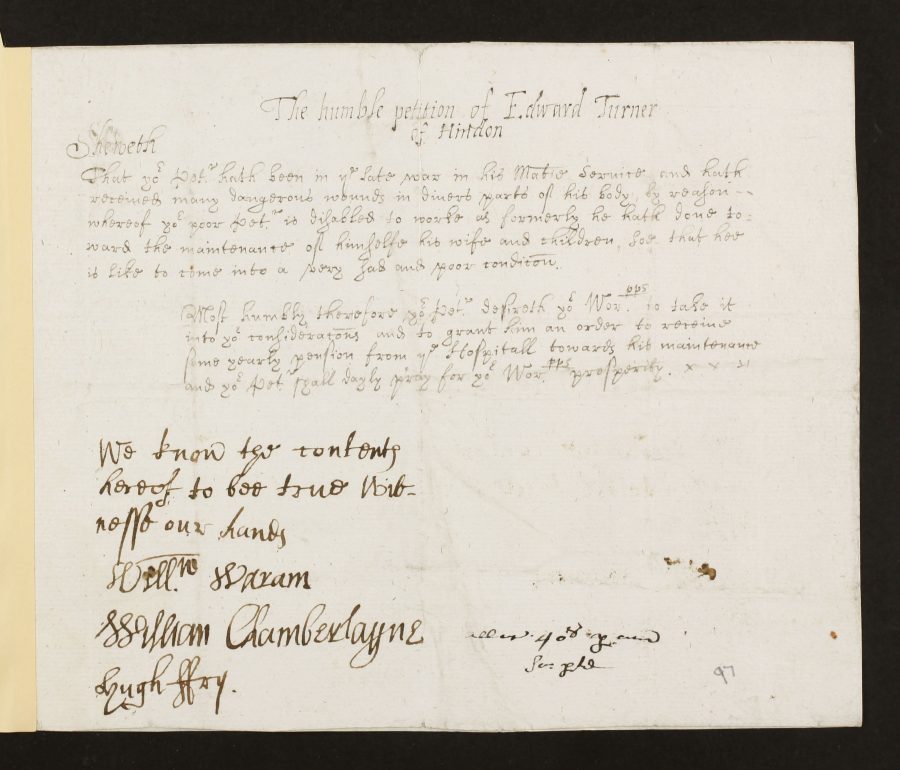 The humble petition of Edward Turner
of Hindon
Sheweth
That yor. Petr. hath been in ye late war in his Matie Service and hath
received many dangerous wounds in divers parts of his body, by reason --
whereof yor. poor Petr. is disabled to worke as formerly he hath done to=
ward the maintenance of himselfe his wife and children, soe that hee
is like to come into a very sad and poor conditon.
Most humbly therefore yor. Petr. desireth yor. Worpps. to take it
into yor. consideratons and to grant him an order to receive
some yearly pension from ye Hospitall towards his maintenance
and yor. Petr. shall dayly pray for yor. Worpps. prosperity. x x x
We know the contents
hereof to bee true Wit-
nesse our hands
Willm Waram
William Chamberlayne
Hugh ffry.
40s p
97